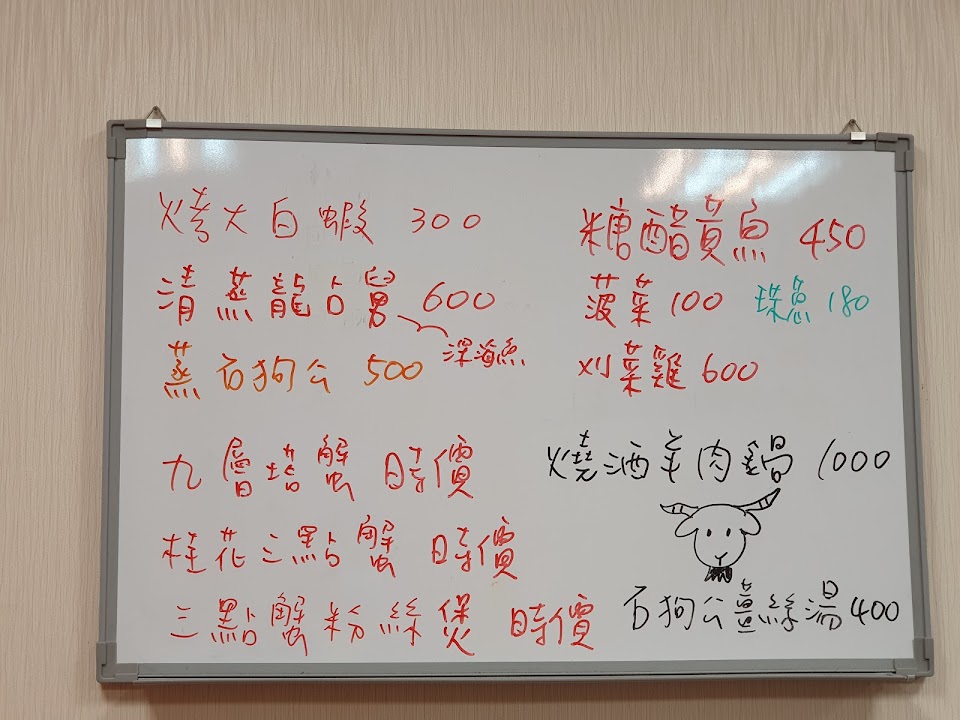 烤大白蝦 300
清蒸龍占舅 600
深海魚
蒸石狗公 500
九層塔蟹 時價
桂花三點蟹 時價
三點蟹粉絲煲 時價
糖醋黃魚 450
菠菜 100 珠葱 180
刈菜雞 600
燒酒羊肉鍋 1000
石狗公薑絲湯 400